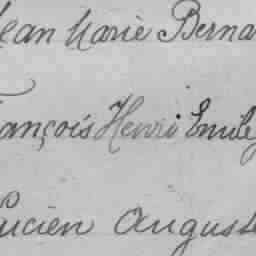 Jean Marie Berna
François Henri Emile
Lucien Auguste